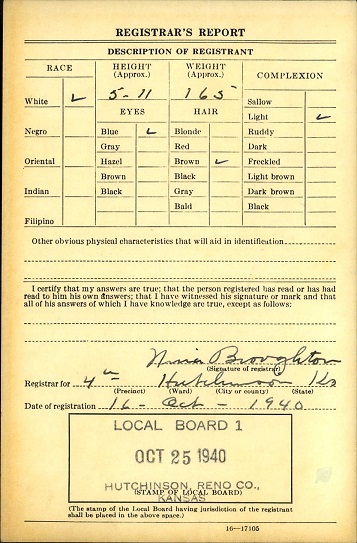 REGISTRAR'S REPORT
DESCRIPTION OF REGISTRANT
RACE
HEIGHT (Approx.)
WEIGHT (Approx.)
COMPLEXION
White ✓
5-11
165
Sallow
EYES
HAIR
Light ✓
Negro
Blue ✓
Blonde
Ruddy
Gray
Red
Dark
Oriental
Hazel
Brown ✓
Freckled
Brown
Black
Light brown
Indian
Black
Gray
Dark brown
Bald
Black
Filipino
Other obvious physical characteristics that will aid in identification
I certify that my answers are true; that the person registered has read or has had
read to him his own answers; that I have witnessed his signature or mark and that
all of his answers of which I have knowledge are true, except as follows:
Broughton
(Signature of registrar)
Registrar for 4th Hutchinson Ks
(Precinct) (Ward) (City or county) (State)
Date of registration 16 - Oct - 1940
LOCAL BOARD 1
OCT 25 1940
HUTCHINSON, RENO CO.,
(STAMP OF LOCAL BOARD)
KANSAS
(The stamp of the Local Board having jurisdiction of the registrant
shall be placed in the above space.)
16—17105